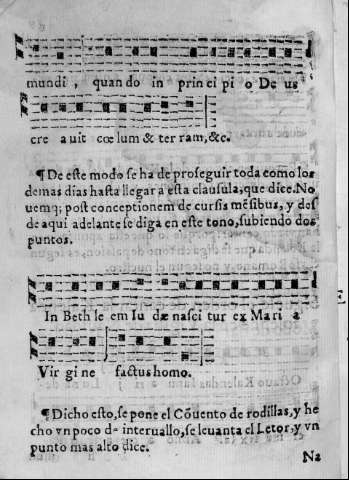 mundi, quando in principio Deus
creauit cœlum & terram, &c.
¶ De este modo se ha de proseguir toda como los
demas dias hasta llegar a esta clausula, que dice. No
uemq; post conceptionem de cursis mẽsibus, y des
de aqui adelante se diga en este tono, subiendo dos
puntos.
In Bethleem Iudæ nascitur ex Maria
Virgine factus homo.
¶ Dicho esto, se pone el Cõuento de rodillas, y he
cho vn poco de interuallo, se leuanta el Letor, y vn
punto mas alto dice.
Na